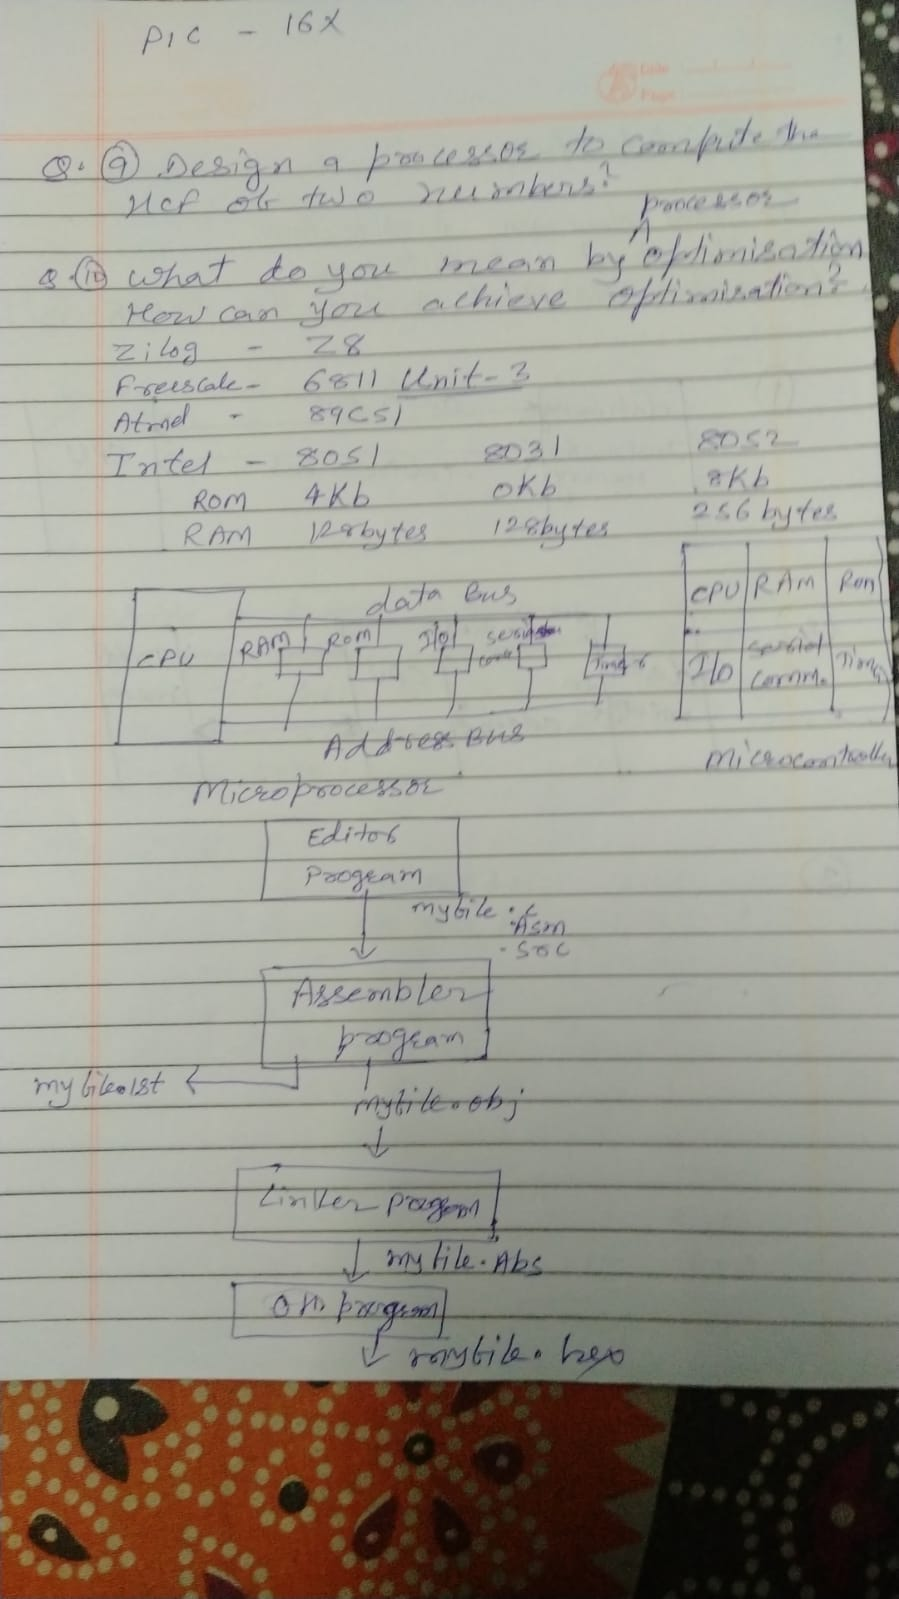 PIC - 16X
Date
Page
Q. (9) Design a processor to compute the
HCF of two numbers?
processor
Q. (10) What do you mean by ^ optimisation
How can you achieve optimisation?
Zilog - Z8
Freescale - 6811 Unit-3
Atmel - 89C51
Intel - 8051 8031 8052
ROM 4Kb 0Kb 8Kb
RAM 128bytes 128bytes 256 bytes
data Bus
CPU RAM ROM I/O Timer
Address Bus
Microprocessor
CPU RAM Rom
I/O Serial Comm. Timer
Microcontroller
Editor
Program
myfile .c
.Asm
.src
Assembler
program
myfile.lst
myfile.obj
Linker program
myfile.Abs
OH program
myfile.hex